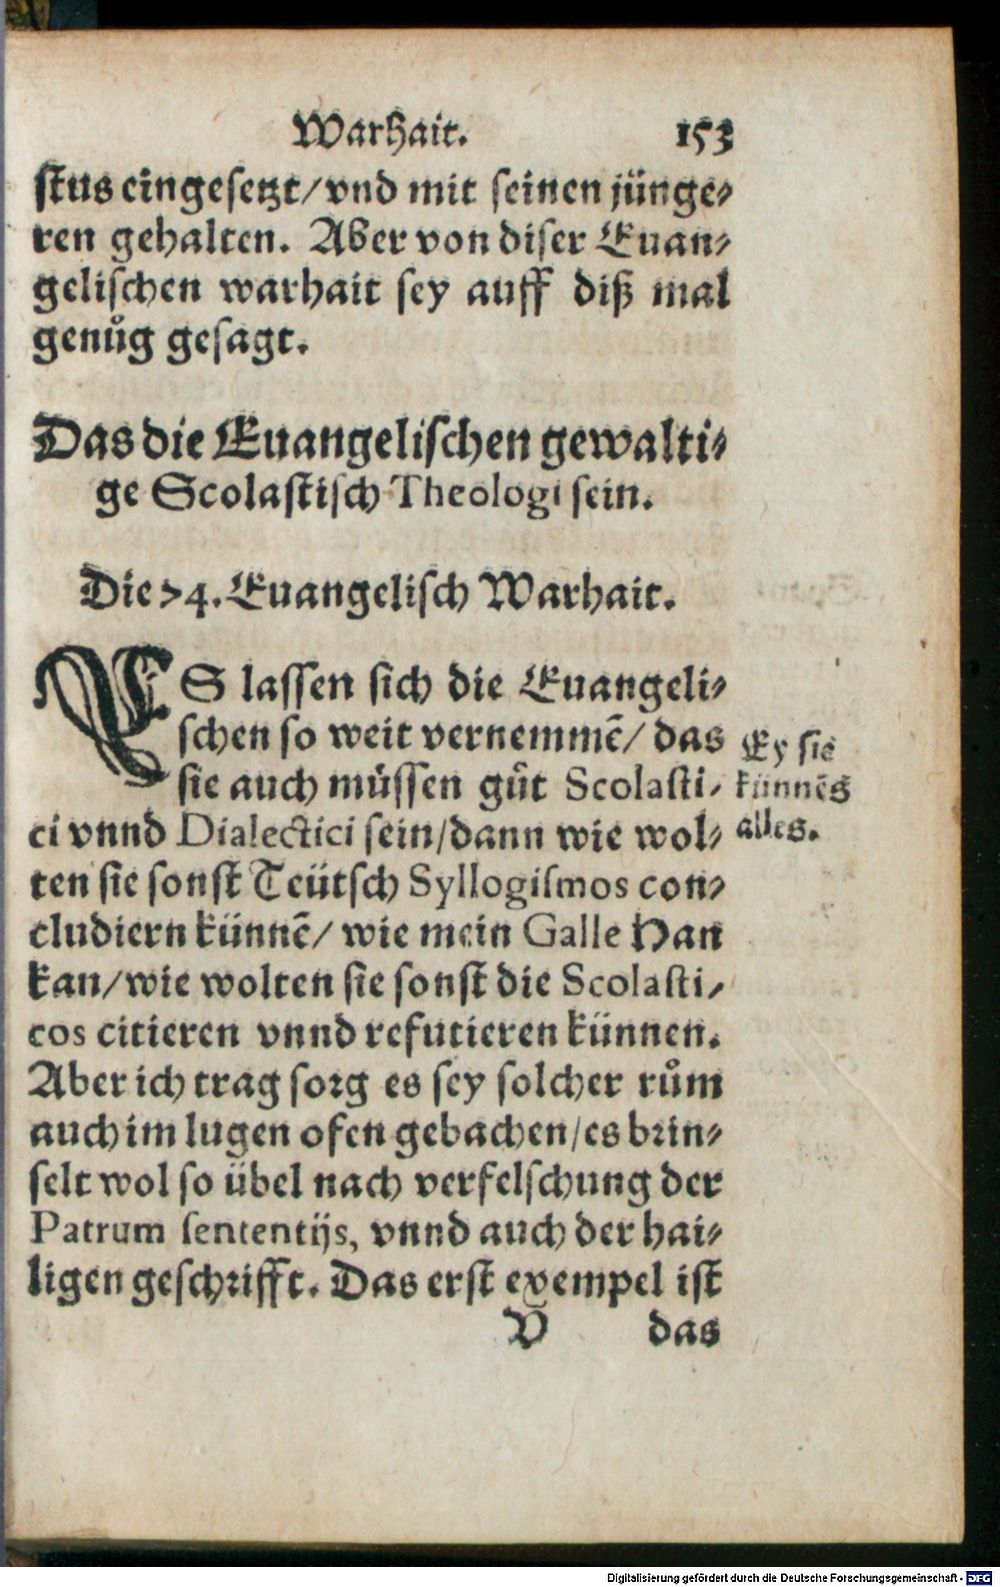 Warhait. 153
stus eingesetzt/vnd mit seinen jünge-
ren gehalten. Aber von diser Euan-
gelischen warhait sey auff diß mal
genůg gesagt.
Das die Euangelischen gewalti-
ge Scolastisch Theologi sein.
Die 74. Euangelisch Warhait.
ES lassen sich die Euangeli-
schen so weit vernemmẽ/ das
sie auch müssen gůt Scolasti-
ci vnnd Dialectici sein/dann wie wol-
ten sie sonst Teütsch Syllogismos con-
cludiern künnẽ/ wie mein Galle Han
kan/wie wolten sie sonst die Scolasti-
cos citieren vnnd refutieren künnen.
Aber ich trag sorg es sey solcher rům
auch im lugen ofen gebachen/es brin-
selt wol so übel nach verfelschung der
Patrum sententijs, vnnd auch der hai-
ligen geschrifft. Das erst exempel ist
V das
Ey sie
künnẽs
alles.
Digitalisierung gefördert durch die Deutsche Forschungsgemeinschaft - DFG